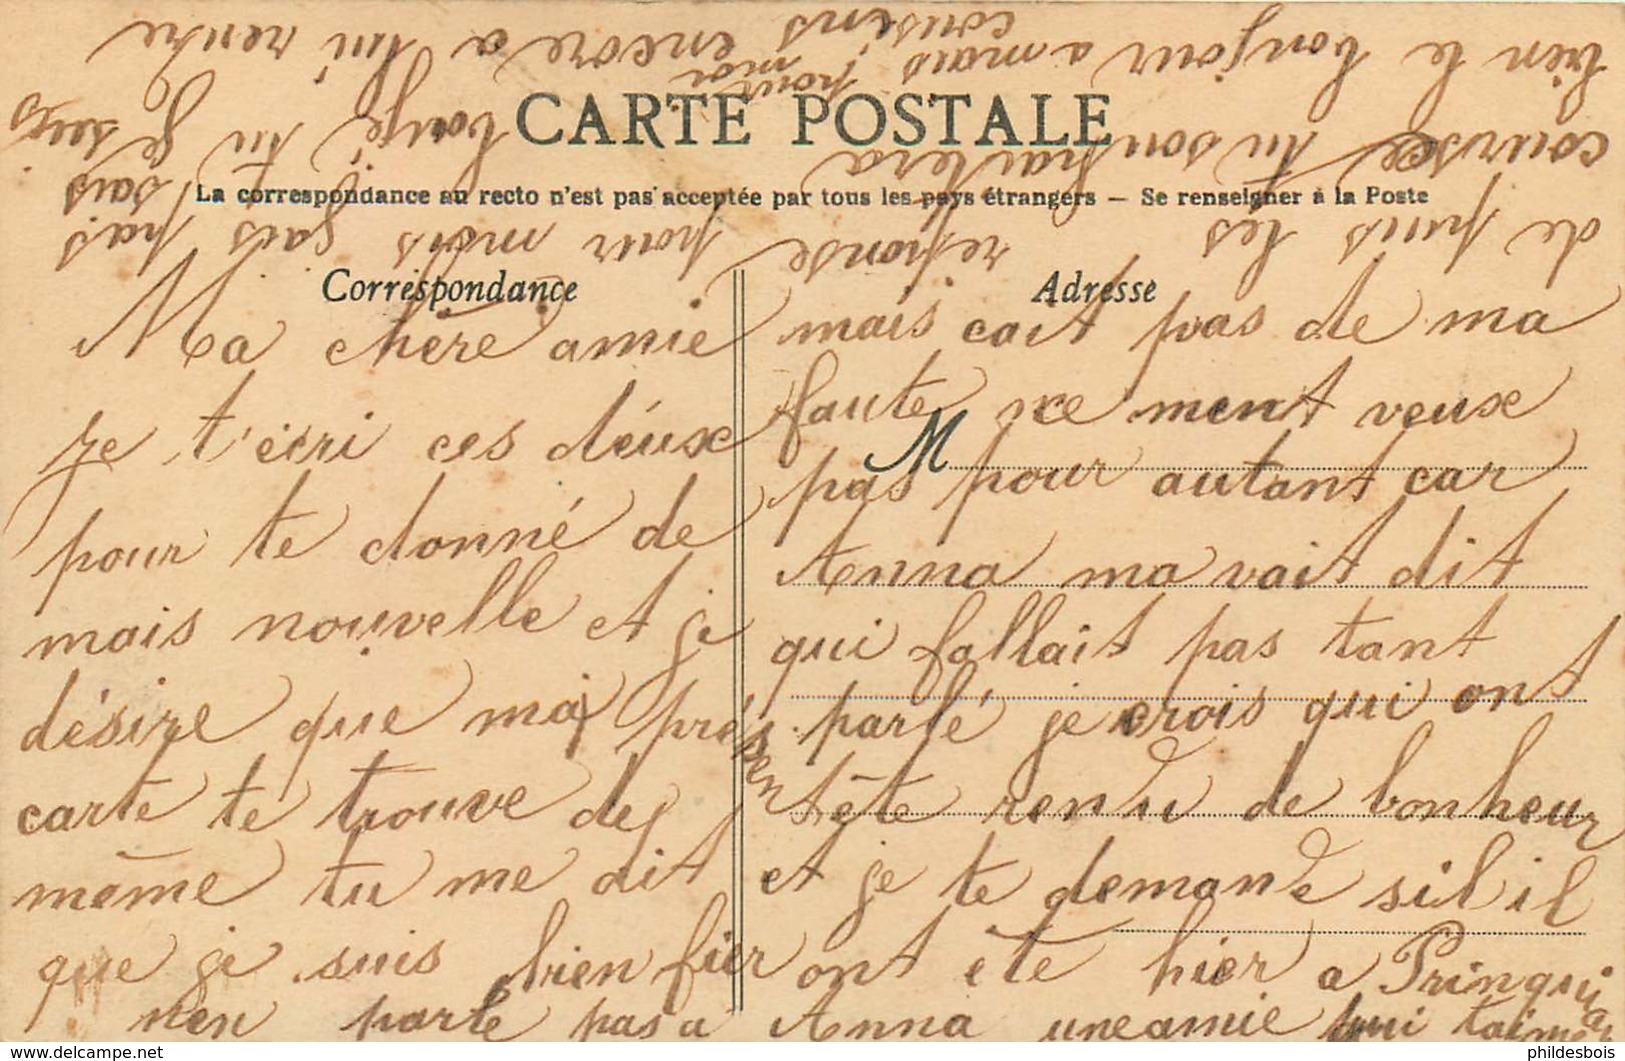 CARTE POSTALE
La correspondance au recto n'est pas acceptée par tous les pays étrangers — Se renseigner à la Poste
Correspondance
Adresse
M
Ma chère amie
je t'écri ces deux
pour te donné de
mais nouvelle et je
désire que mai présen
carte te trouve de
même tu me dit
que je suis bien fier
mais cait pas de ma
faute ce ment veux
pas pour autant car
Anna ma vait dit
qui fallait pas tant
parlé je crois qui ont
tête rendu de bonheur
et je te demande sil il
ont été hier a Prinquiau
nen parle pas a Anna une amie qui t'aime
de puis les reponse pour mois sais pas
course tu souhaitera bouje tu je sais
bien le bonjour a mais encore a lui rendre
cousins
pour moi
phildesbois